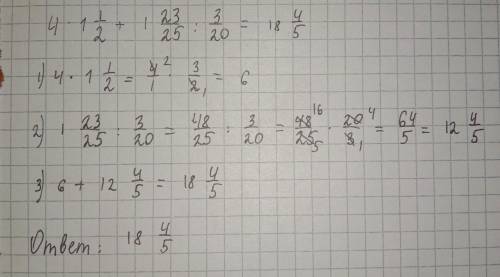 4 · 1 1/2 + 1 23/25 : 3/20 = 18 4/5
1) 4 · 1 1/2 = 4²/1 · 3/2₁ = 6
2) 1 23/25 : 3/20 = 48/25 : 3/20 = 48¹⁶/25₅ · 20⁴/3₁ = 64/5 = 12 4/5
3) 6 + 12 4/5 = 18 4/5
Ответ: 18 4/5